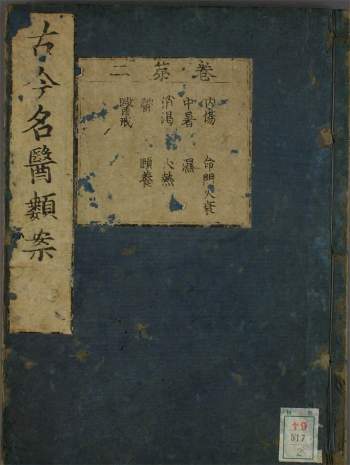 古今名醫類案
卷第二
內傷 命門火衰
中暑 濕
消渴 火熱
鬱 頤養
19
517
2